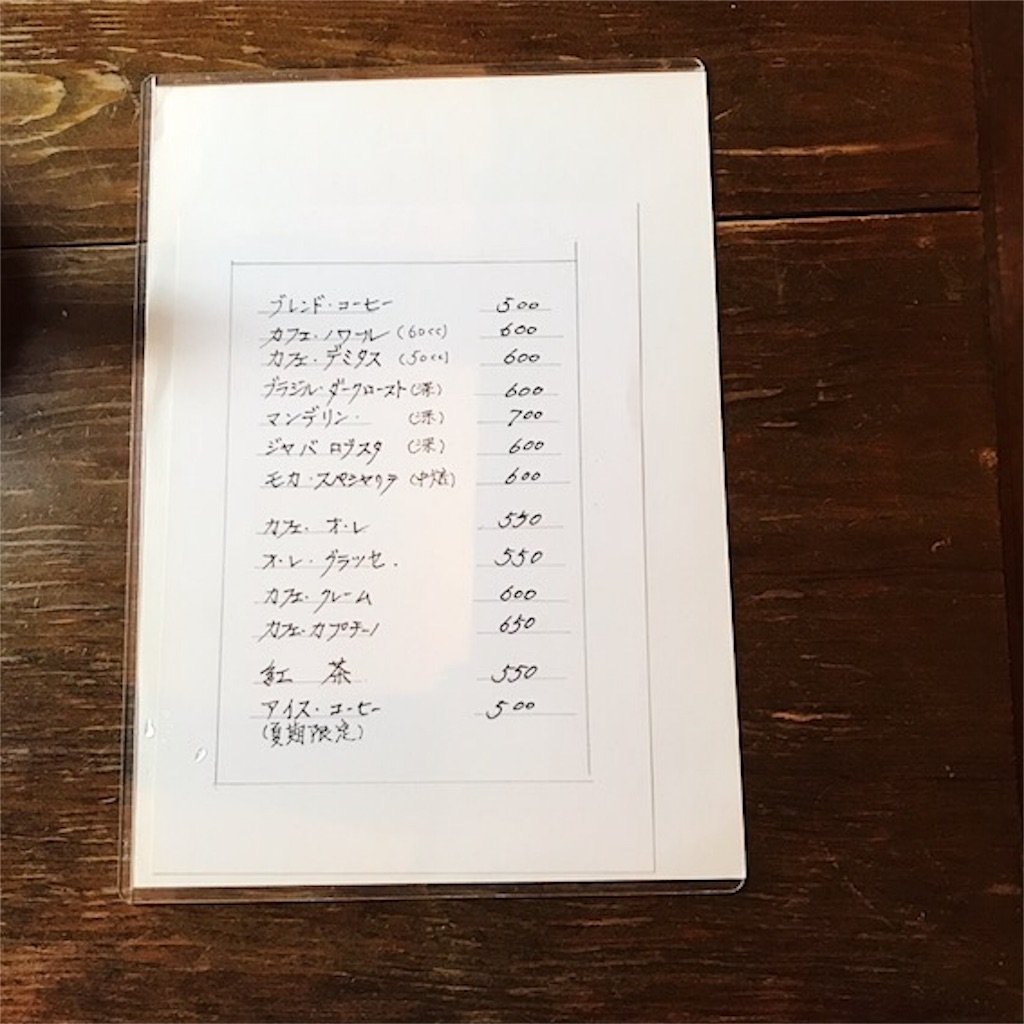 ブレンド・コーヒー 500
カフェ・ノワール (60cc) 600
カフェ・デミタス (50cc) 600
ブラジル・ダークロースト (深) 600
マンデリン・ (深) 700
ジャバ ロブスタ (深) 600
モカ・スペシャリテ (中焙) 600
カフェ・オ・レ 550
オ・レ・グラッセ. 550
カフェ・クレーム 600
カフェ・カプチーノ 650
紅 茶 550
アイス・コーヒー 500
(夏期限定)